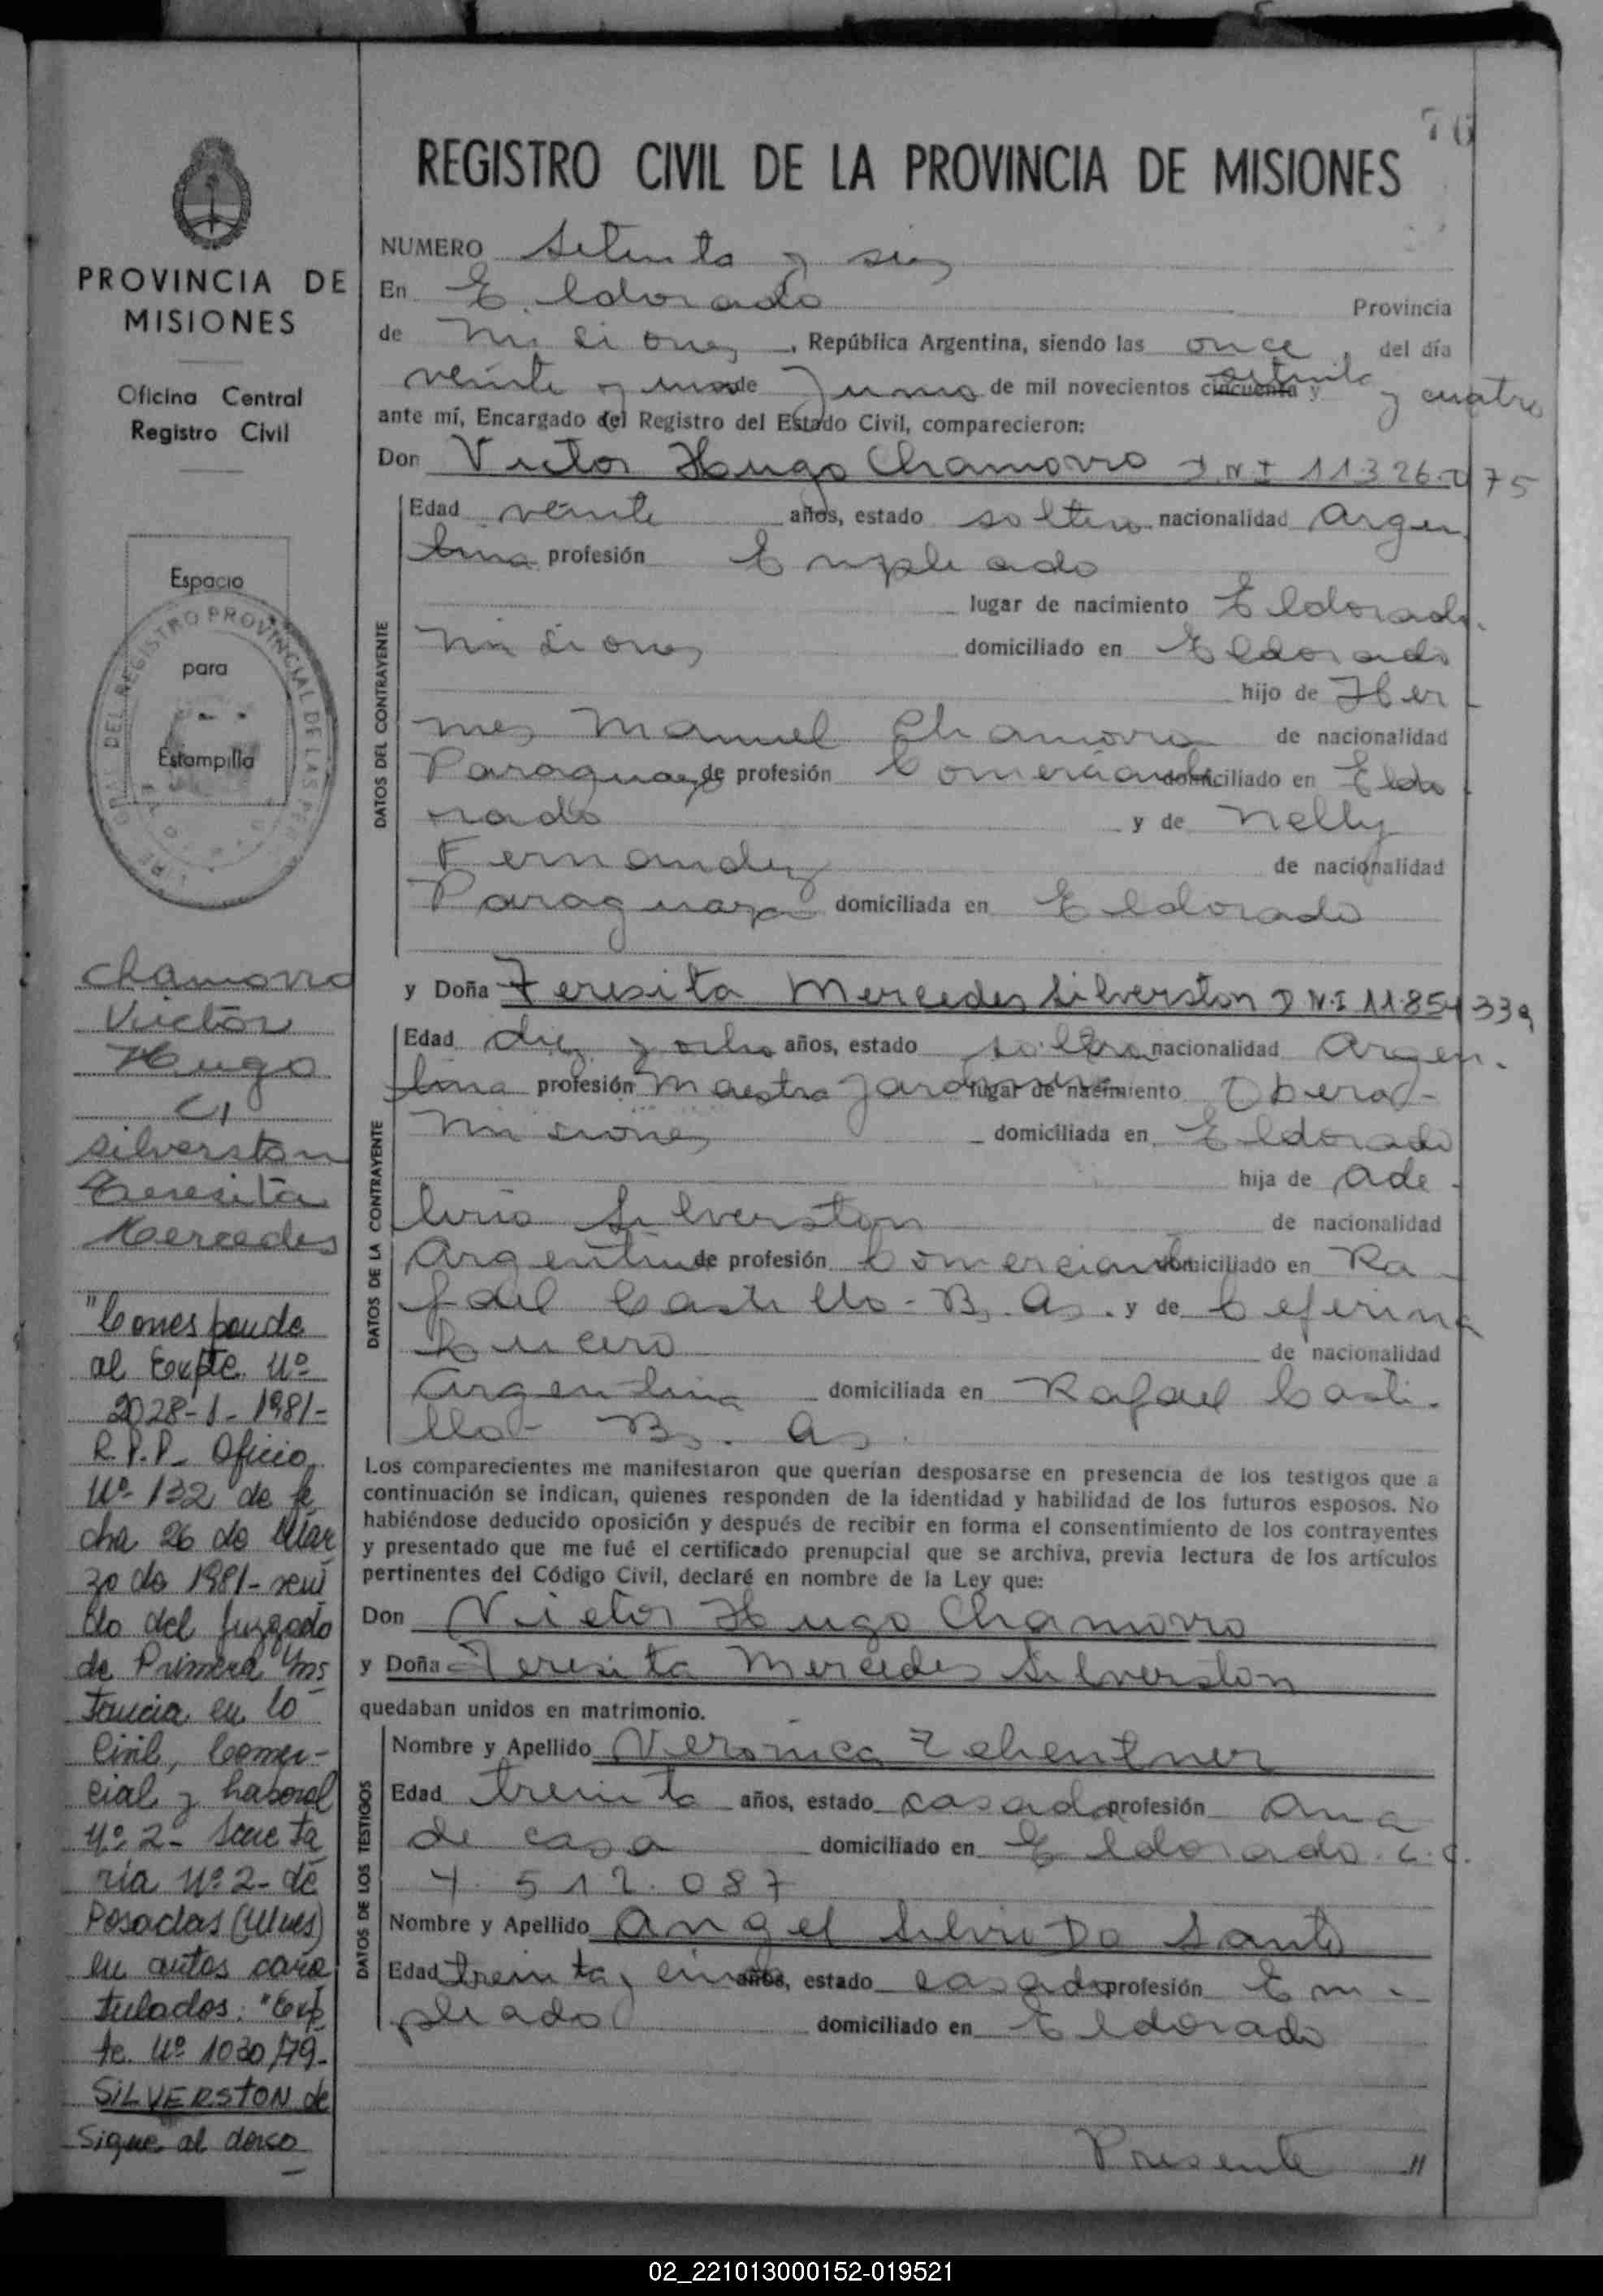 76
REGISTRO CIVIL DE LA PROVINCIA DE MISIONES
PROVINCIA DE
MISIONES
Oficina Central
Registro Civil
Espacio
para
Estampilla
Chamorro
Victor
Hugo
C/
Silverston
Teresita
Mercedes
"Corresponde
al Expte. Nº
2028-1-1981-
R.P.P- Oficio
Nº 132 de fe
cha 26 de Mar
zo de 1981- remi
do del Juzgado
de Primera Ins
tancia en lo
Civil, Comer-
cial y Laboral
Nº 2- Secreta
ría Nº 2- de
Posadas (Mnes)
en autos cara
tulados: "Exp
te. Nº 1030/79-
SILVERSTON de
Sigue al dorso
NUMERO Setenta y seis
En Eldorado Provincia
de Misiones, República Argentina, siendo las once, del día
veinte y uno de Junio de mil novecientos cincuenta y setenta y cuatro
ante mí, Encargado del Registro del Estado Civil, comparecieron:
Don Victor Hugo Chamorro D.N.I 11.326.075
DATOS DEL CONTRAYENTE
Edad veinte años, estado soltero nacionalidad Argen
tina profesión Empleado
lugar de nacimiento Eldorado.
Misiones domiciliado en Eldorado
hijo de Her
mes Manuel Chamorro de nacionalidad
Paraguayo de profesión Comerciante domiciliado en Eldo
rado y de Nelly
Fernandez de nacionalidad
Paraguaya domiciliada en Eldorado
y Doña Teresita Mercedes Silverston D.N.I 11.854339
DATOS DE LA CONTRAYENTE
Edad diez y ocho años, estado soltera nacionalidad Argen-
tina profesión Maestra Jardinera lugar de nacimiento Obera-
Misiones domiciliada en Eldorado
hija de Ade
lirio Silverston de nacionalidad
Argentino de profesión Comerciante domiciliado en Ra
fael Castillo - Bs. As. y de Ceferina
Lucero de nacionalidad
Argentina domiciliada en Rafael Casti-
llo- Bs. As.
Los comparecientes me manifestaron que querían desposarse en presencia de los testigos que a
continuación se indican, quienes responden de la identidad y habilidad de los futuros esposos. No
habiéndose deducido oposición y después de recibir en forma el consentimiento de los contrayentes
y presentado que me fué el certificado prenupcial que se archiva, previa lectura de los artículos
pertinentes del Código Civil, declaré en nombre de la Ley que:
Don Victor Hugo Chamorro
y Doña Teresita Mercedes Silverston
quedaban unidos en matrimonio.
DATOS DE LOS TESTIGOS
Nombre y Apellido Veronica Zehentner
Edad treinta años, estado casada profesión Ama
de casa domiciliado en Eldorado. L.C.
4.512.087
Nombre y Apellido Angel Silvio Do Santo
Edad treinta y cinco años, estado casado profesión Em-
pleado domiciliado en Eldorado
Presente "
02_221013000152-019521